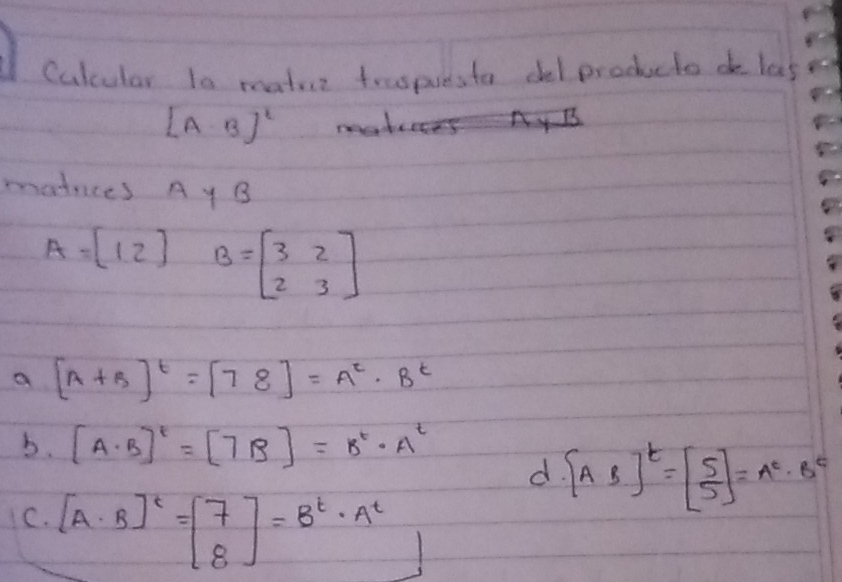 Calcular la matriz traspuesta del producto de las
[A · B]^t matrices A y B
matrices A y B
A = [1 2] B = [3 2
2 3]
a [A + B]^t = [7 8] = A^t · B^t
b. [A · B]^t = [7 8] = B^t · A^t
c. [A · B]^t = [7
8] = B^t · A^t
d. [A B]^t = [5
5] = A^t · B^t